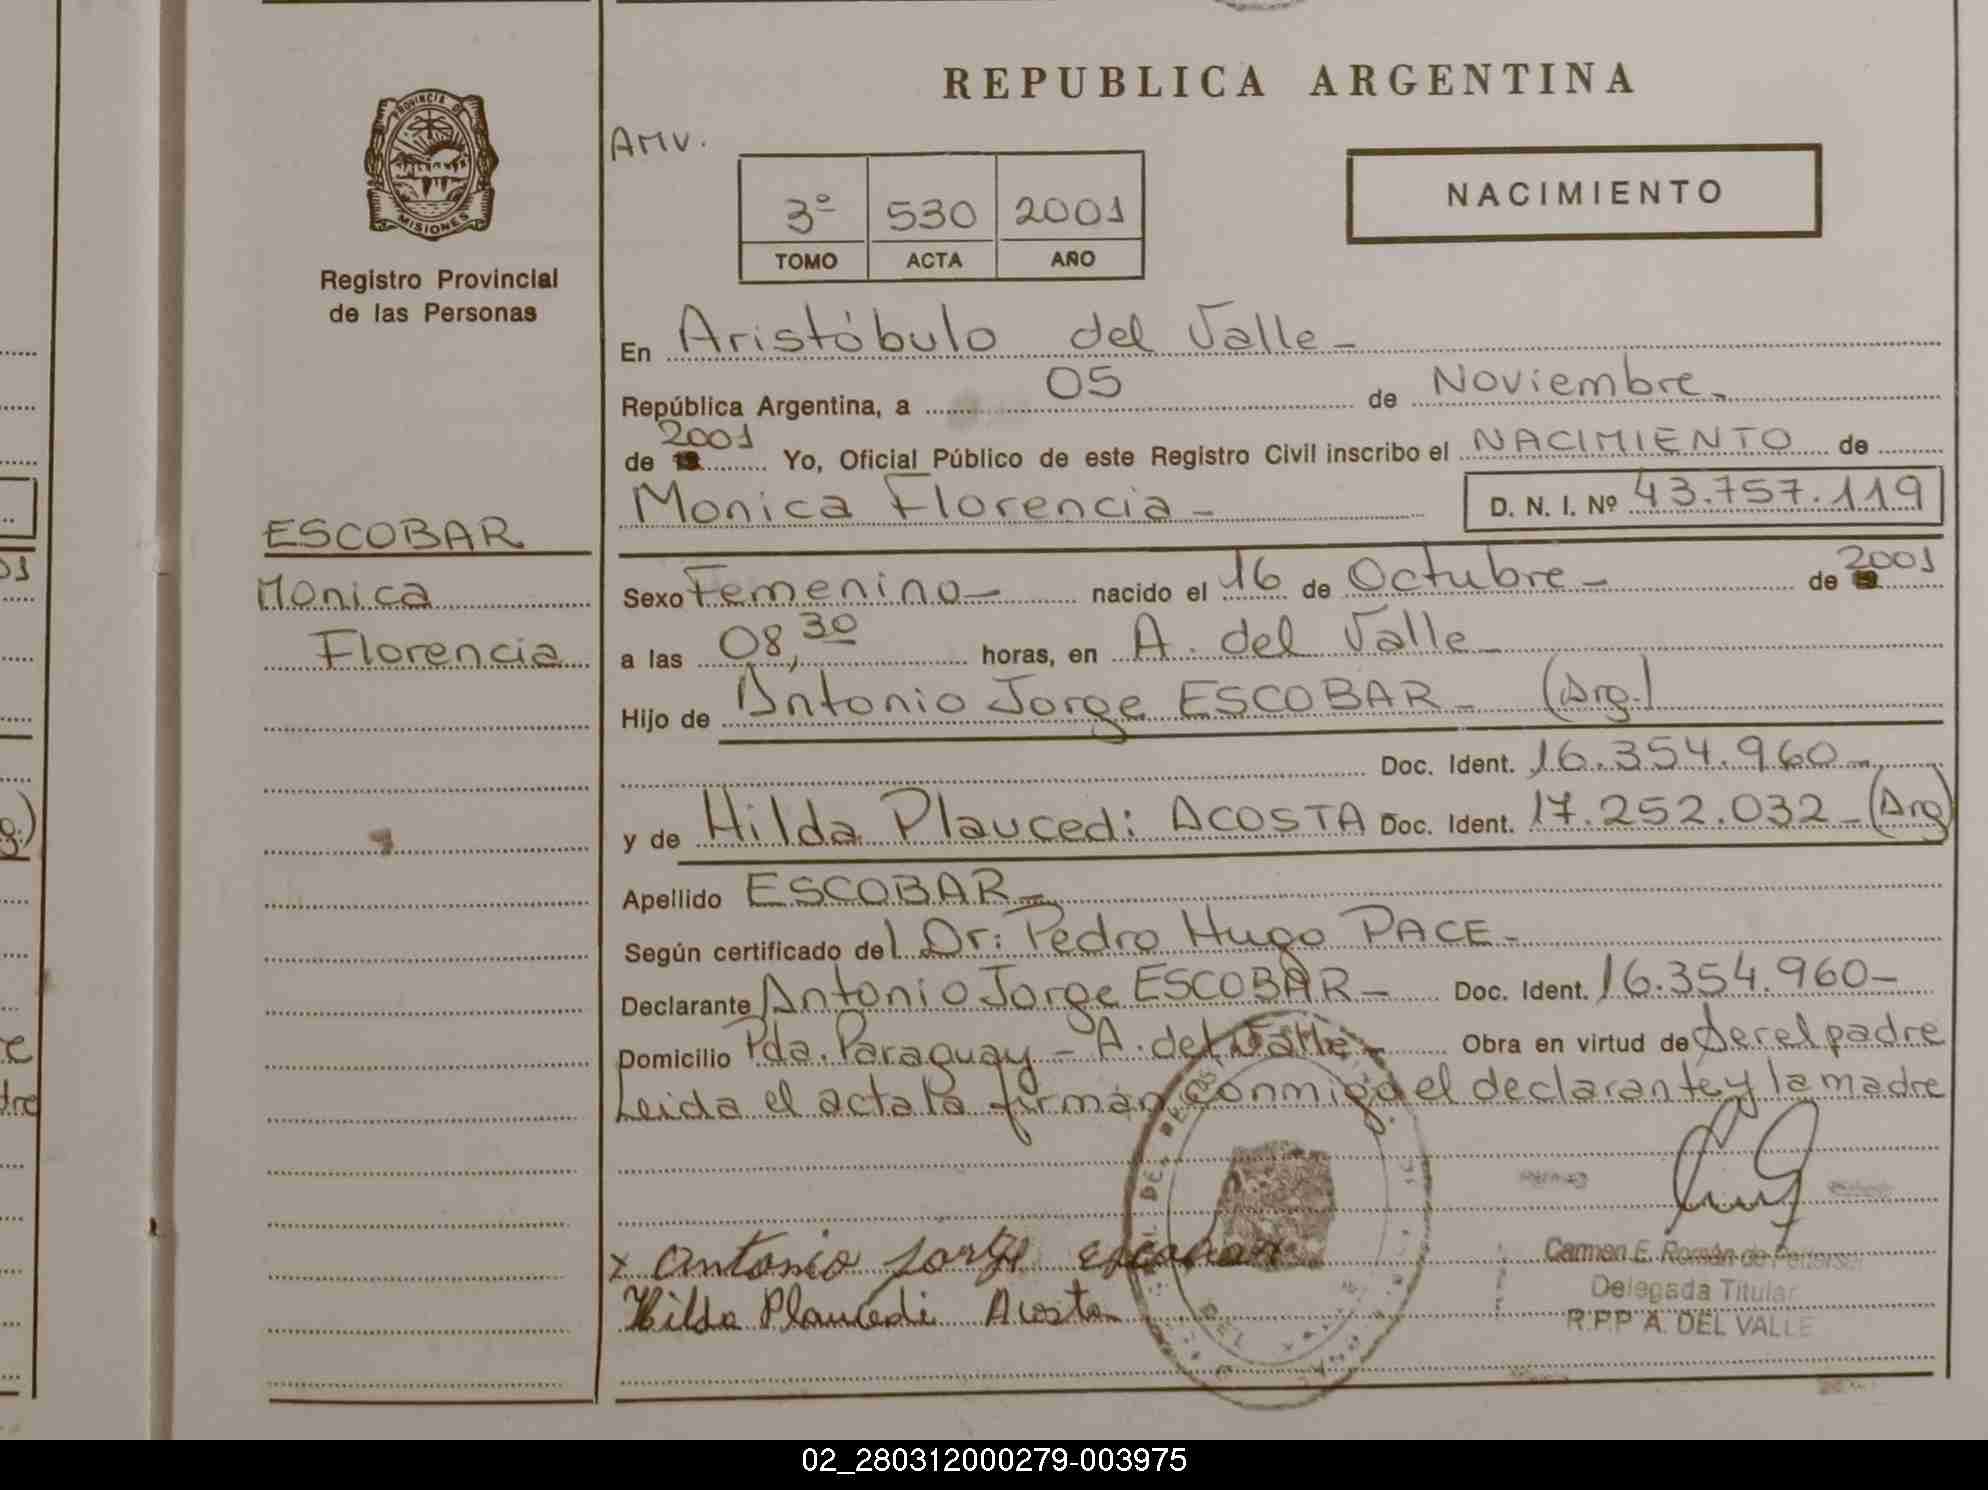 REPUBLICA ARGENTINA
PROVINCIA DE
MISIONES
Registro Provincial
de las Personas
AMV.
3º 530 2001
TOMO ACTA AÑO
NACIMIENTO
En Aristóbulo del Valle-
República Argentina, a 05 de Noviembre-
de 2001 Yo, Oficial Público de este Registro Civil inscribo el NACIMIENTO de
Monica Florencia- D. N. I. Nº 43.757.119
ESCOBAR
Monica
Florencia
Sexo Femenino- nacido el 16 de Octubre- de 2001
a las 08,30 horas, en A. del Valle-
Hijo de Antonio Jorge ESCOBAR- (Arg.)
Doc. Ident. 16.354.960-
y de Hilda Plaucedi ACOSTA Doc. Ident. 17.252.032-(Arg)
Apellido ESCOBAR-
Según certificado del Dr: Pedro Hugo PACE-
Declarante Antonio Jorge ESCOBAR- Doc. Ident. 16.354.960-
Domicilio Pda. Paraguay - A. del Valle- Obra en virtud de Ser el padre
Leida el acta la firman conmigo el declarante y la madre
x Antonio Jorge escobar
Hilda Plaucedi Acosta
Carmen E. Román de
Delegada Titular
R.P.P. A. DEL VALLE
02_280312000279-003975